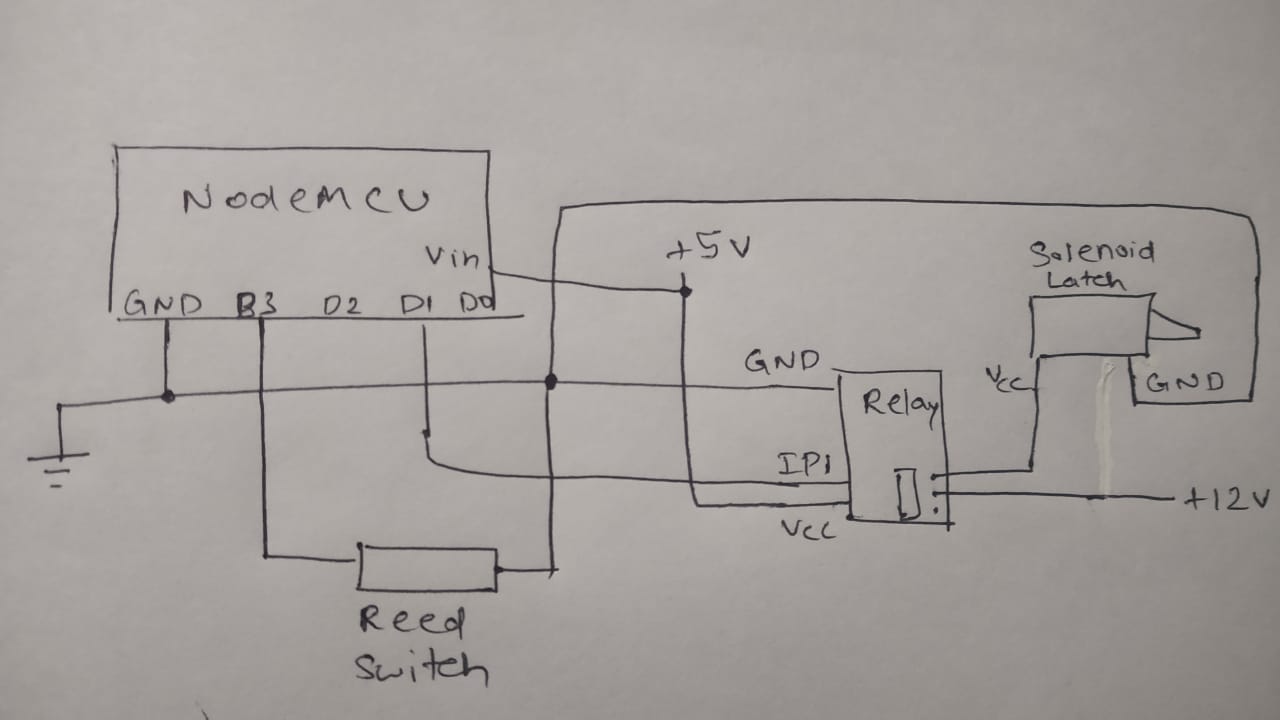 NodeMCU
Vin
GND D3 D2 D1 D0
+5V
Solenoid
Latch
GND
Relay
VCC
GND
IP1
VCC
+12V
Reed
Switch